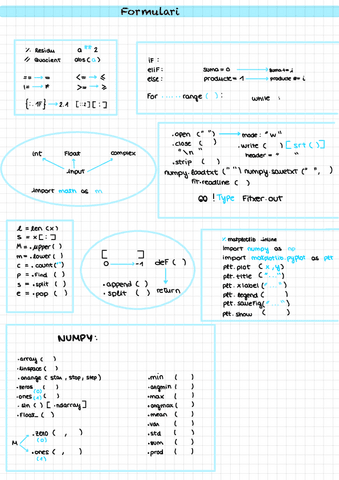 Formulari
% Residu a ** 2
// Quocient abs(a)
== → = <= → ≤
!= → ≠ >= → ≥
{:.1F} → 2.1 [::2] [:]
if :
elif: suma = 0 → suma += i
else: producte = 1 → producte *= i
For ...... range ( ) : while i
int Float complex
.input
import math as m
.open (" ") → mode: "w"
.close ( ) .write ( ) [str( )]
"\n " header = " "
.strip ( )
numpy.loadtxt (" ") numpy.savetxt (" ", )
fit.readline ( )
GO ! Type Fitxer.out
l = len (x)
S = x [ : ]
M = .upper ( )
m = .lower ( )
c = .count (" ")
p = .find ( )
s = .split ( )
e = .pop ( )
[ ]
0 → -1
.append ( )
.split ( )
def ( )
return
% matplotlib inline
import numpy as np
import matplotlib.pyplot as plt
plt.plot (x,y)
plt.title (" ")
plt.xlabel (" ")
plt.legend ( )
plt.savefig (" ")
plt.show ( )
NUMPY:
.array ( )
.linspace ( )
.arange ( star, stop, step)
.zeros ( )
(0)
.ones ( )
(1)
.sin ( ) [.ndarray]
.float_ ( )
M
.zero ( , )
(0)
.ones ( , )
(1)
.min ( )
.argmin ( )
.max ( )
.argmax ( )
.mean ( )
.var ( )
.std ( )
.sum ( )
.prod ( )